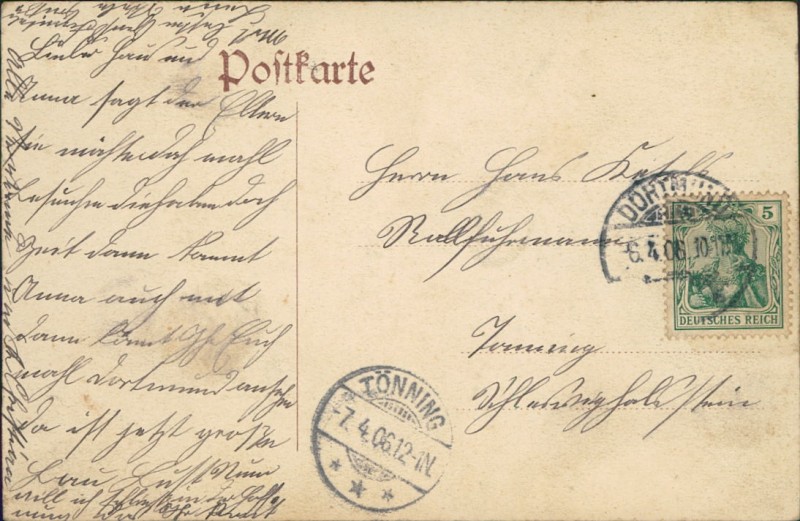 Postkarte
Lieber Hans und
Anna sagt den Eltern
Sie möchte doch mahl
besuchen die haben doch
Zeit dann kommt
Anna auch mit
dann könnt Ihr Euch
mahl Dortmund ansehen
da ist jetzt große
Bau Lust Nun
will ich schließen in der Hoff
nung das Ihr kommt
Herrn Hans
Rollfuhrmann
Tönning
Schleswigholsstein
DORTMUND
6.4.06. 10-11
5
DEUTSCHES REICH
TÖNNING
-7.4.06.12-1N.